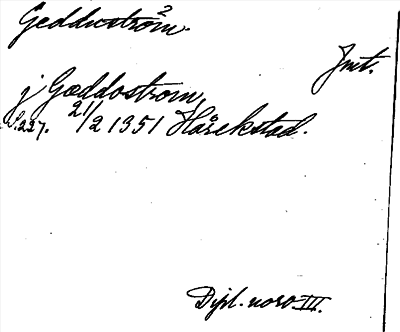 Geddustrom.
Jmt.
j Gæddostrom,
S. 227. 21/2 1351 Hårekstad.
Dipl. norv. III.